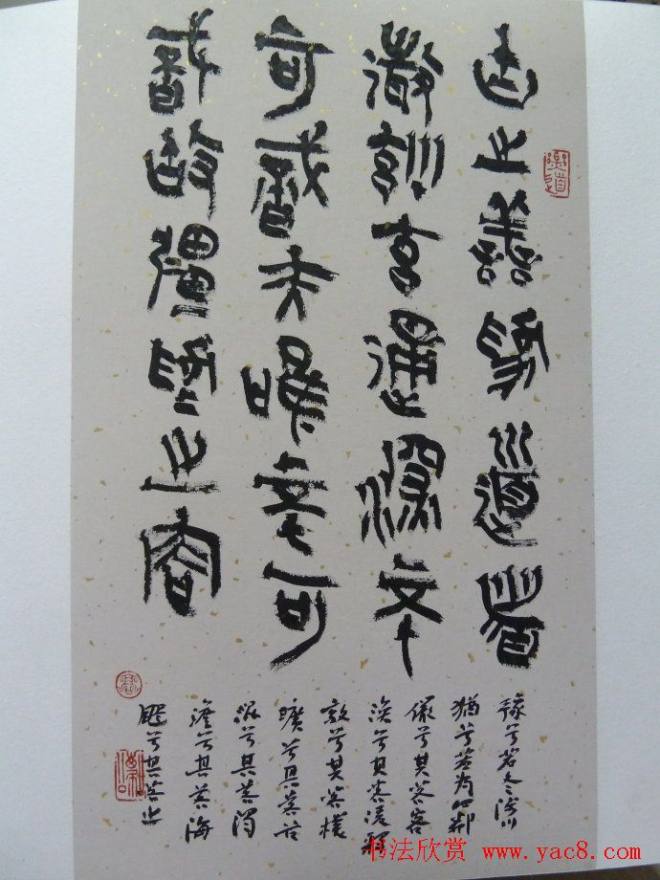 古之善為道者
微妙玄通深不
可識夫唯不可
識故強為之容
豫兮若冬涉川
猶兮若畏四鄰
儼兮其若客
渙兮其若凌釋
敦兮其若樸
曠兮其若谷
混兮其若濁
澹兮其若海
飂兮其若止
书法欣赏 www.yac8.com